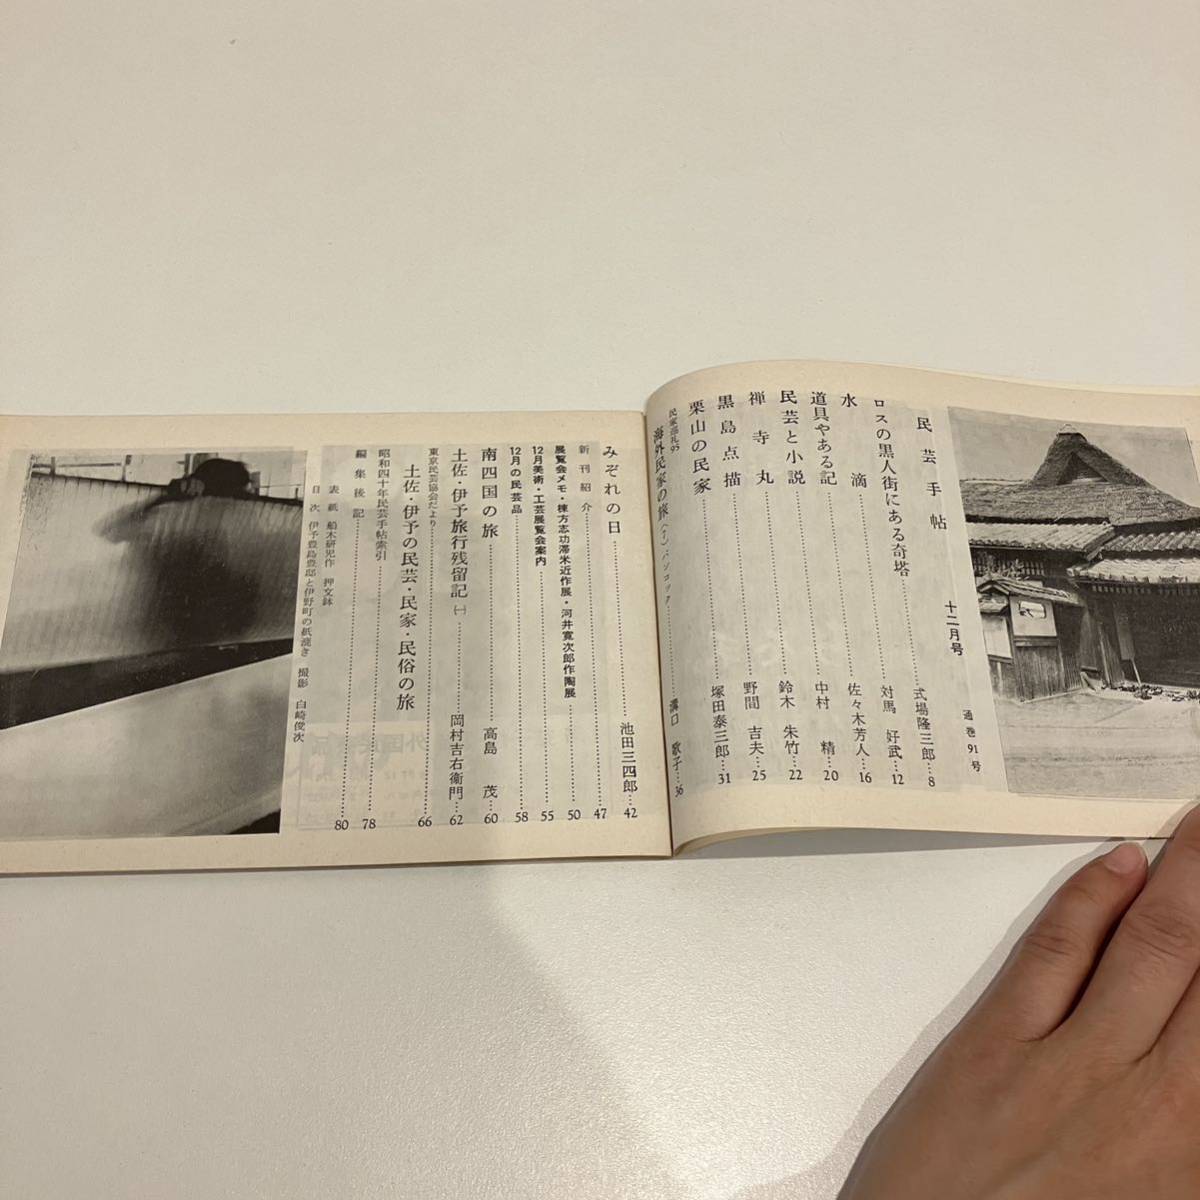 民芸手帖 十二月号 通巻91号
ロスの黒人街にある奇塔……式場隆三郎…8
水滴……対馬 好武…12
道具やある記……佐々木芳人…16
民芸と小説……中村 精…20
禅寺丸……鈴木 朱竹…22
黒島点描……野間 吉夫…25
栗山の民家……塚田泰三郎…31
民家巡礼95
海外民家の旅 バンコック……溝口 歌子…36
みぞれの日……池田三四郎…42
新刊紹介……47
展覧会メモ・棟方志功滞米近作展・河井寛次郎作陶展…50
12月美術・工芸展覧会案内……55
12月の民芸品……58
南四国の旅……高島 茂…60
土佐・伊予旅行残留記(一)……岡村吉右衛門…62
東京民芸協会だより
土佐・伊予の民芸・民家・民俗の旅……66
昭和四十年民芸手帖索引……78
編集後記……80
表紙 船木研児作 押文鉢
目次 伊予豊島豊邸と伊野町の紙漉き 撮影 白崎俊次